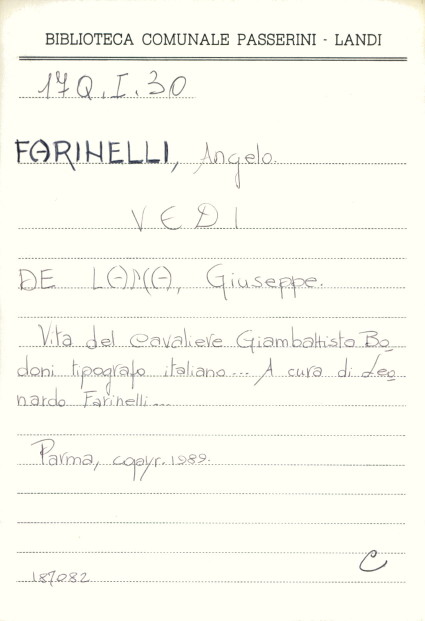 BIBLIOTECA COMUNALE PASSERINI - LANDI
17Q.I.30
FARINELLI, Angelo.
VEDI
DE LAMA, Giuseppe.
Vita del Cavaliere Giambattisto Bo-
doni tipografo italiano... A cura di Leo-
nardo Farinelli...
Parma, copyr. 1989.
C
187082